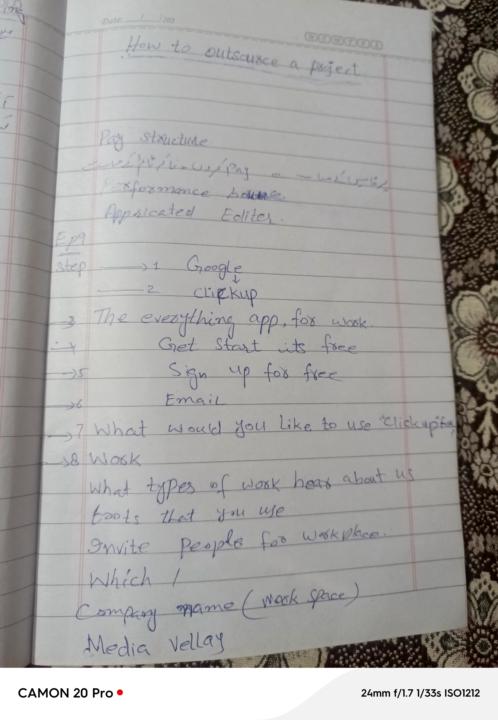 Date
How to outsurce a project
Pay structure
Pay
Performance
Appricated Editer.
Ep9
step 1 Google
↓
2 clickup
3 The everything app, for work.
4 Get Start its free
5 Sign up for free
6 Email
7 What would you like to use "clickup for
8 Work
What types of work hear about us
tools that you use
Invite people for workplace.
Which /
Company name (work space)
Media Vellay
CAMON 20 Pro
24mm f/1.7 1/33s ISO1212